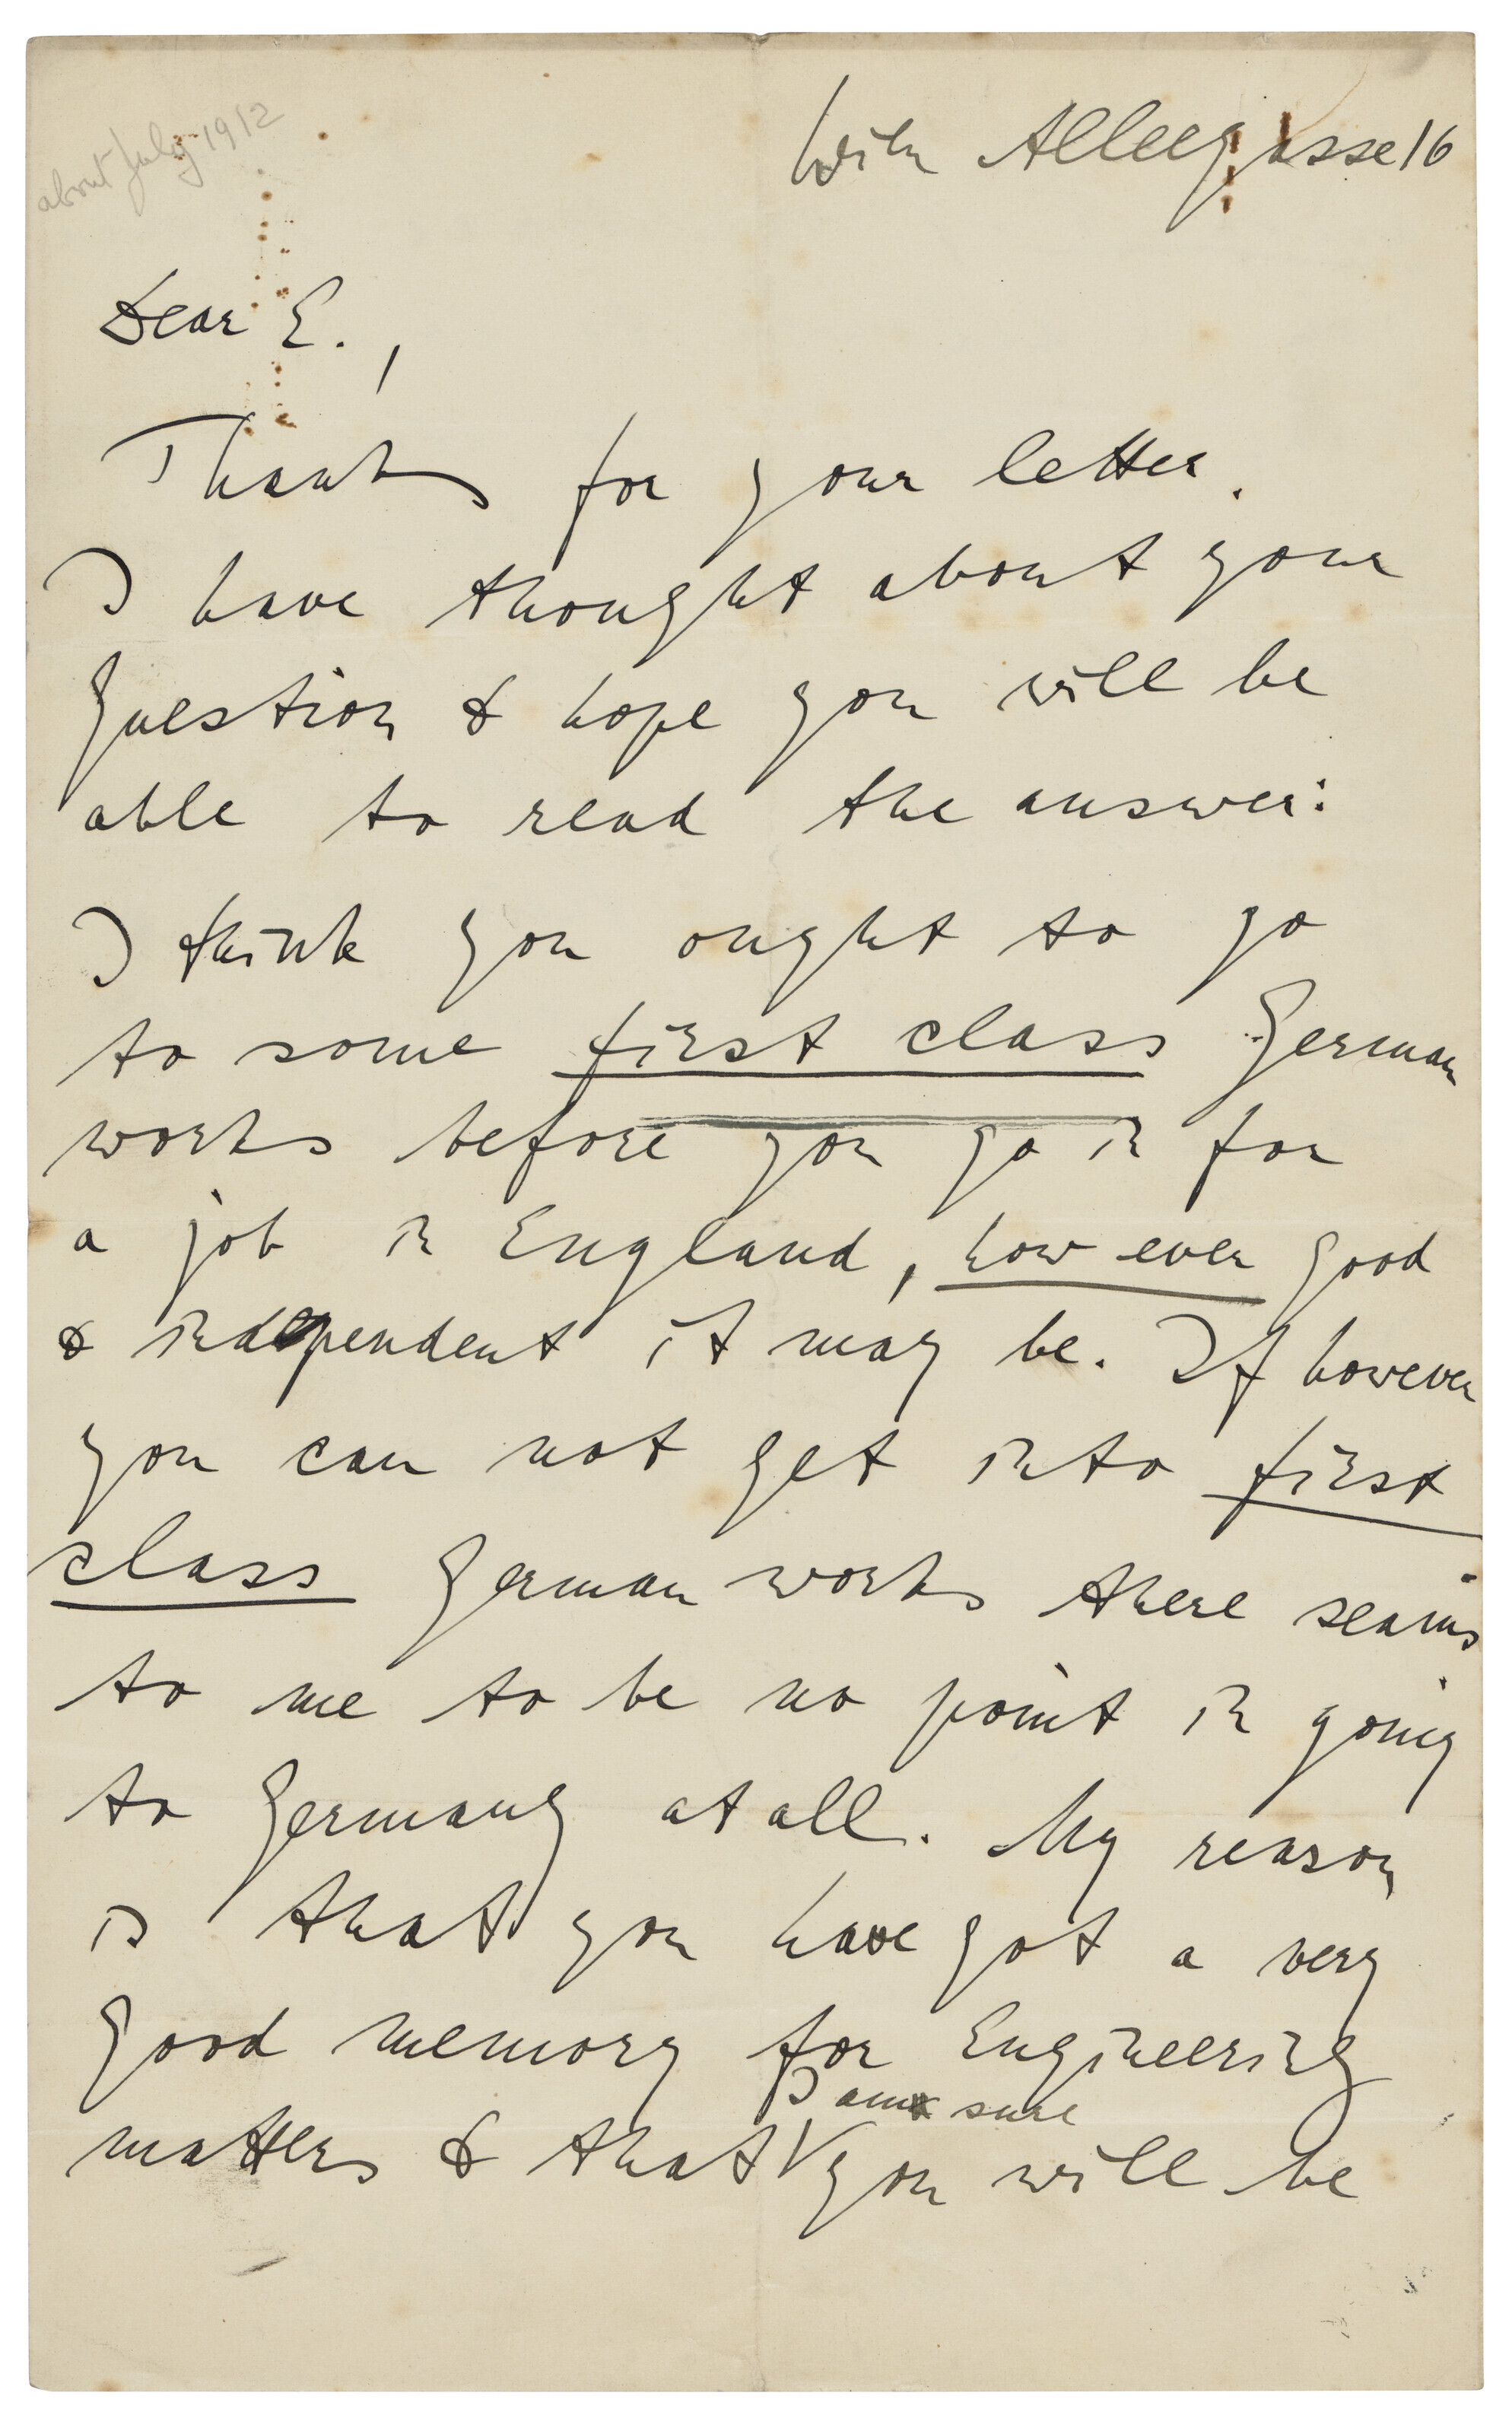 about July 1912
Wien Alleegasse 16
Dear E.,
Thanks for your letter.
I have thought about your
Question & hope you will be
able to read the answer:
I think you ought to go
to some first class German
works before you go in for
a job in England, how ever good
& independent it may be. If however
you can not get into first
class German works there seams
to me to be no point in going
to Germany at all. My reason
is that you have got a very
good memory for Engineering
I am sure
matters & that you will be